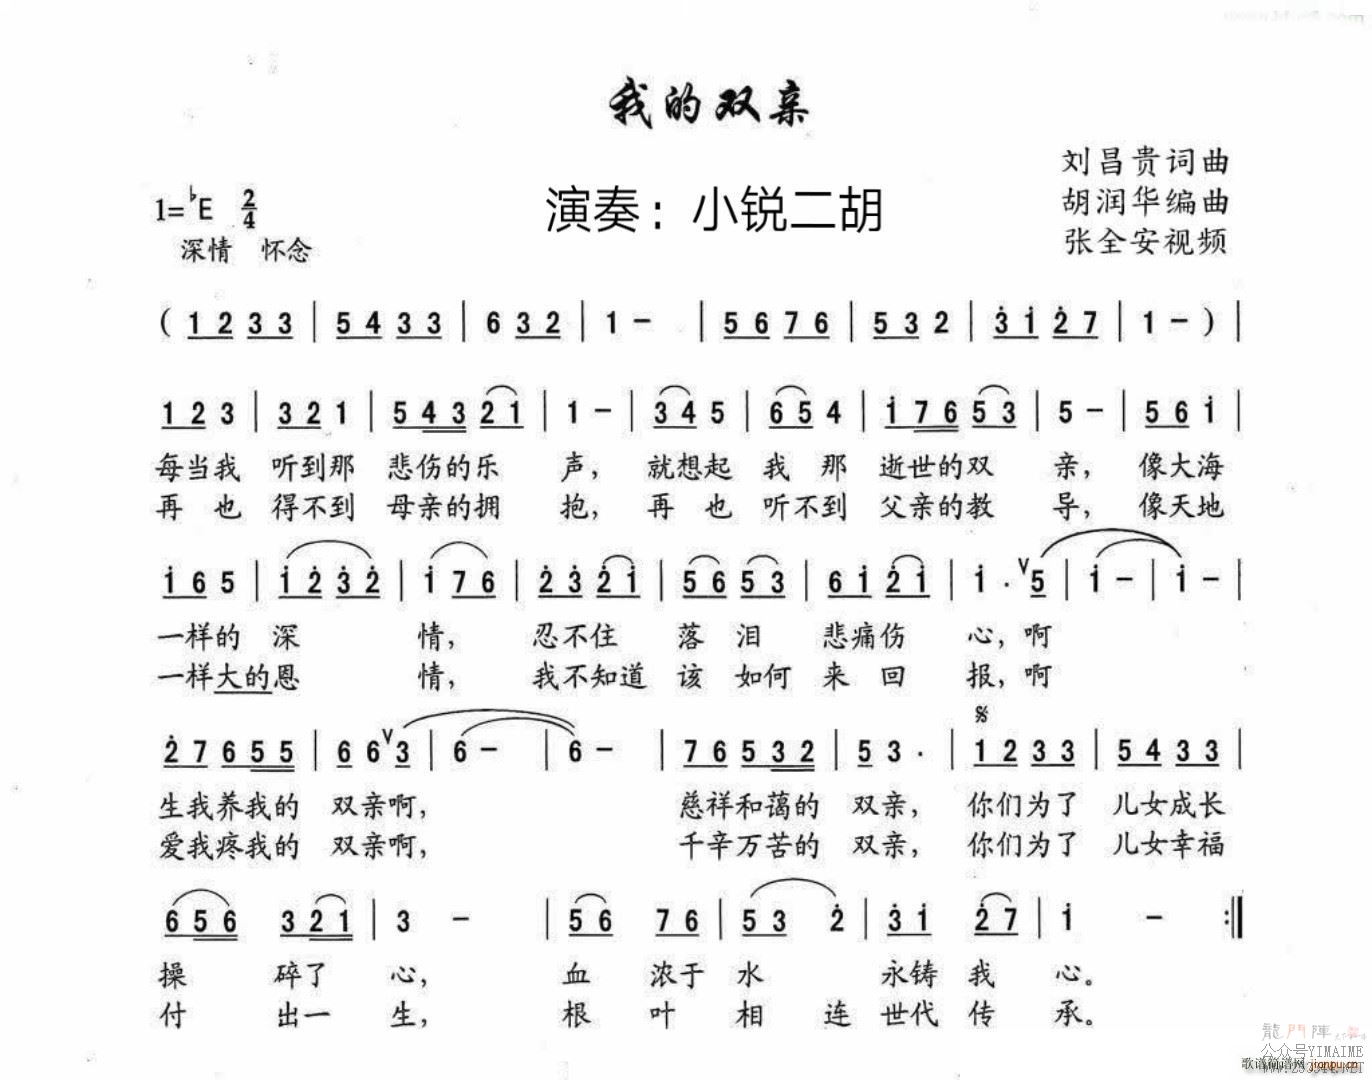 我的双亲
刘昌贵词曲
1=♭E 2/4 演奏：小锐二胡 胡润华编曲
深情 怀念 张全安视频
( 1 2 3 3 | 5 4 3 3 | 6 3 2 | 1 - | 5 6 7 6 | 5 3 2 | 3̇ 1̇ 2̇ 7 | 1 - ) |
1 2 3 | 3 2 1 | 5 4 3 2 1 | 1 - | 3 4 5 | 6 5 4 | 1̇ 7 6 5 3 | 5 - | 5 6 1̇ |
每当我 听到那 悲伤的乐 声，就想起 我 那 逝世的双 亲，像大海
再 也 得不到 母亲的拥 抱，再 也 听不到 父亲的教 导，像天地
1̇ 6 5 | 1̇ 2̇ 3̇ 2̇ | 1̇ 7 6 | 2̇ 3̇ 2̇ 1̇ | 5 6 5 3 | 6 1̇ 2̇ 1̇ | 1̇ . ∨ 5 | 1̇ - | 1̇ - |
一样的 深 情，忍不住 落 泪 悲痛伤 心，啊
一样大的恩 情，我不知道 该 如何 来 回 报，啊
2̇ 7 6 5 5 | 6 6 ∨ 3 | 6 - | 6 - | 7 6 5 3 2 | 5 3 . | 𝄋 1 2 3 3 | 5 4 3 3 |
生我养我的 双亲啊， 慈祥和蔼的 双亲，你们为了 儿女成长
爱我疼我的 双亲啊， 千辛万苦的 双亲，你们为了 儿女幸福
6 5 6 3 2 1 | 3 - | 5 6 7 6 | 5 3 2̇ | 3̇ 1̇ 2̇ 7 | 1̇ - :‖
操 碎了 心， 血 浓于 水 永铸 我 心。
付 出一 生， 根 叶 相 连 世代 传 承。
龍門陣
公众号YIMAIME
歌谱简谱网 jianpu.cn